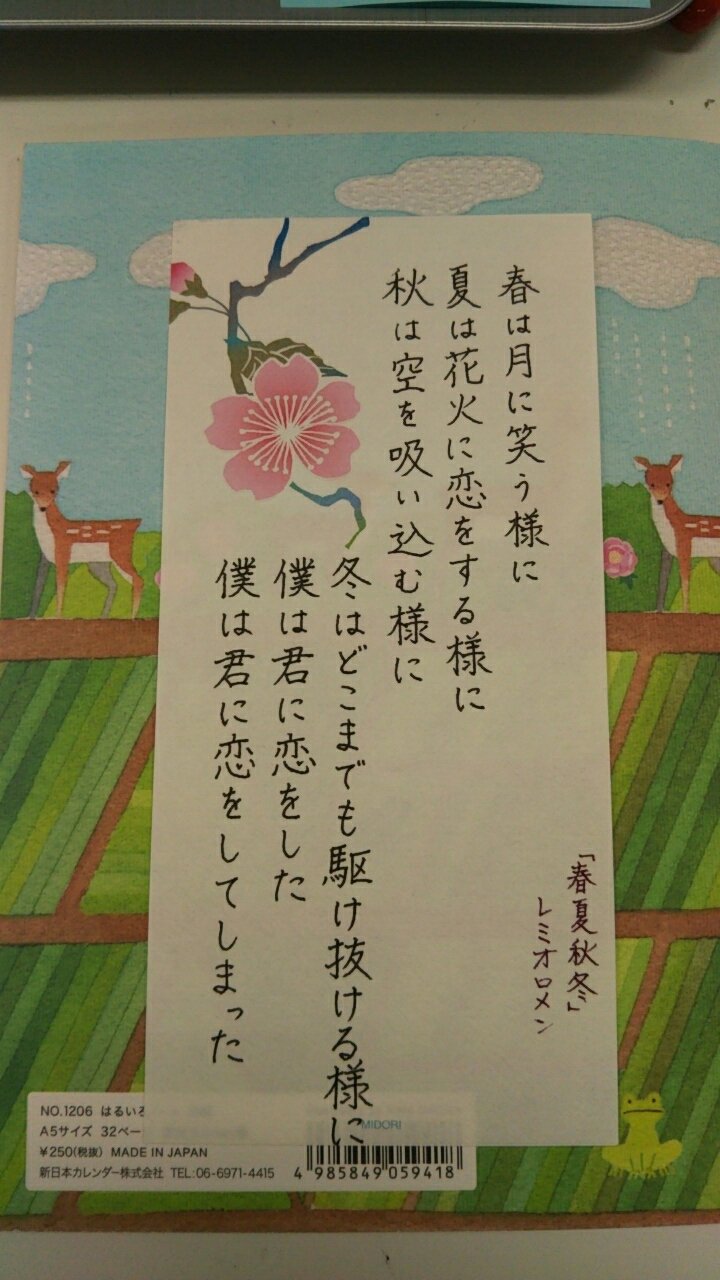 「春夏秋冬」
レミオロメン
春は月に笑う様に
夏は花火に恋をする様に
秋は空を吸い込む様に
冬はどこまでも駆け抜ける様に
僕は君に恋をした
僕は君に恋をしてしまった
MIDORI
NO.1206 はるいろ
A5サイズ 32ペー
¥250(税抜) MADE IN JAPAN
新日本カレンダー株式会社 TEL:06-6971-4415
4 985849 059418